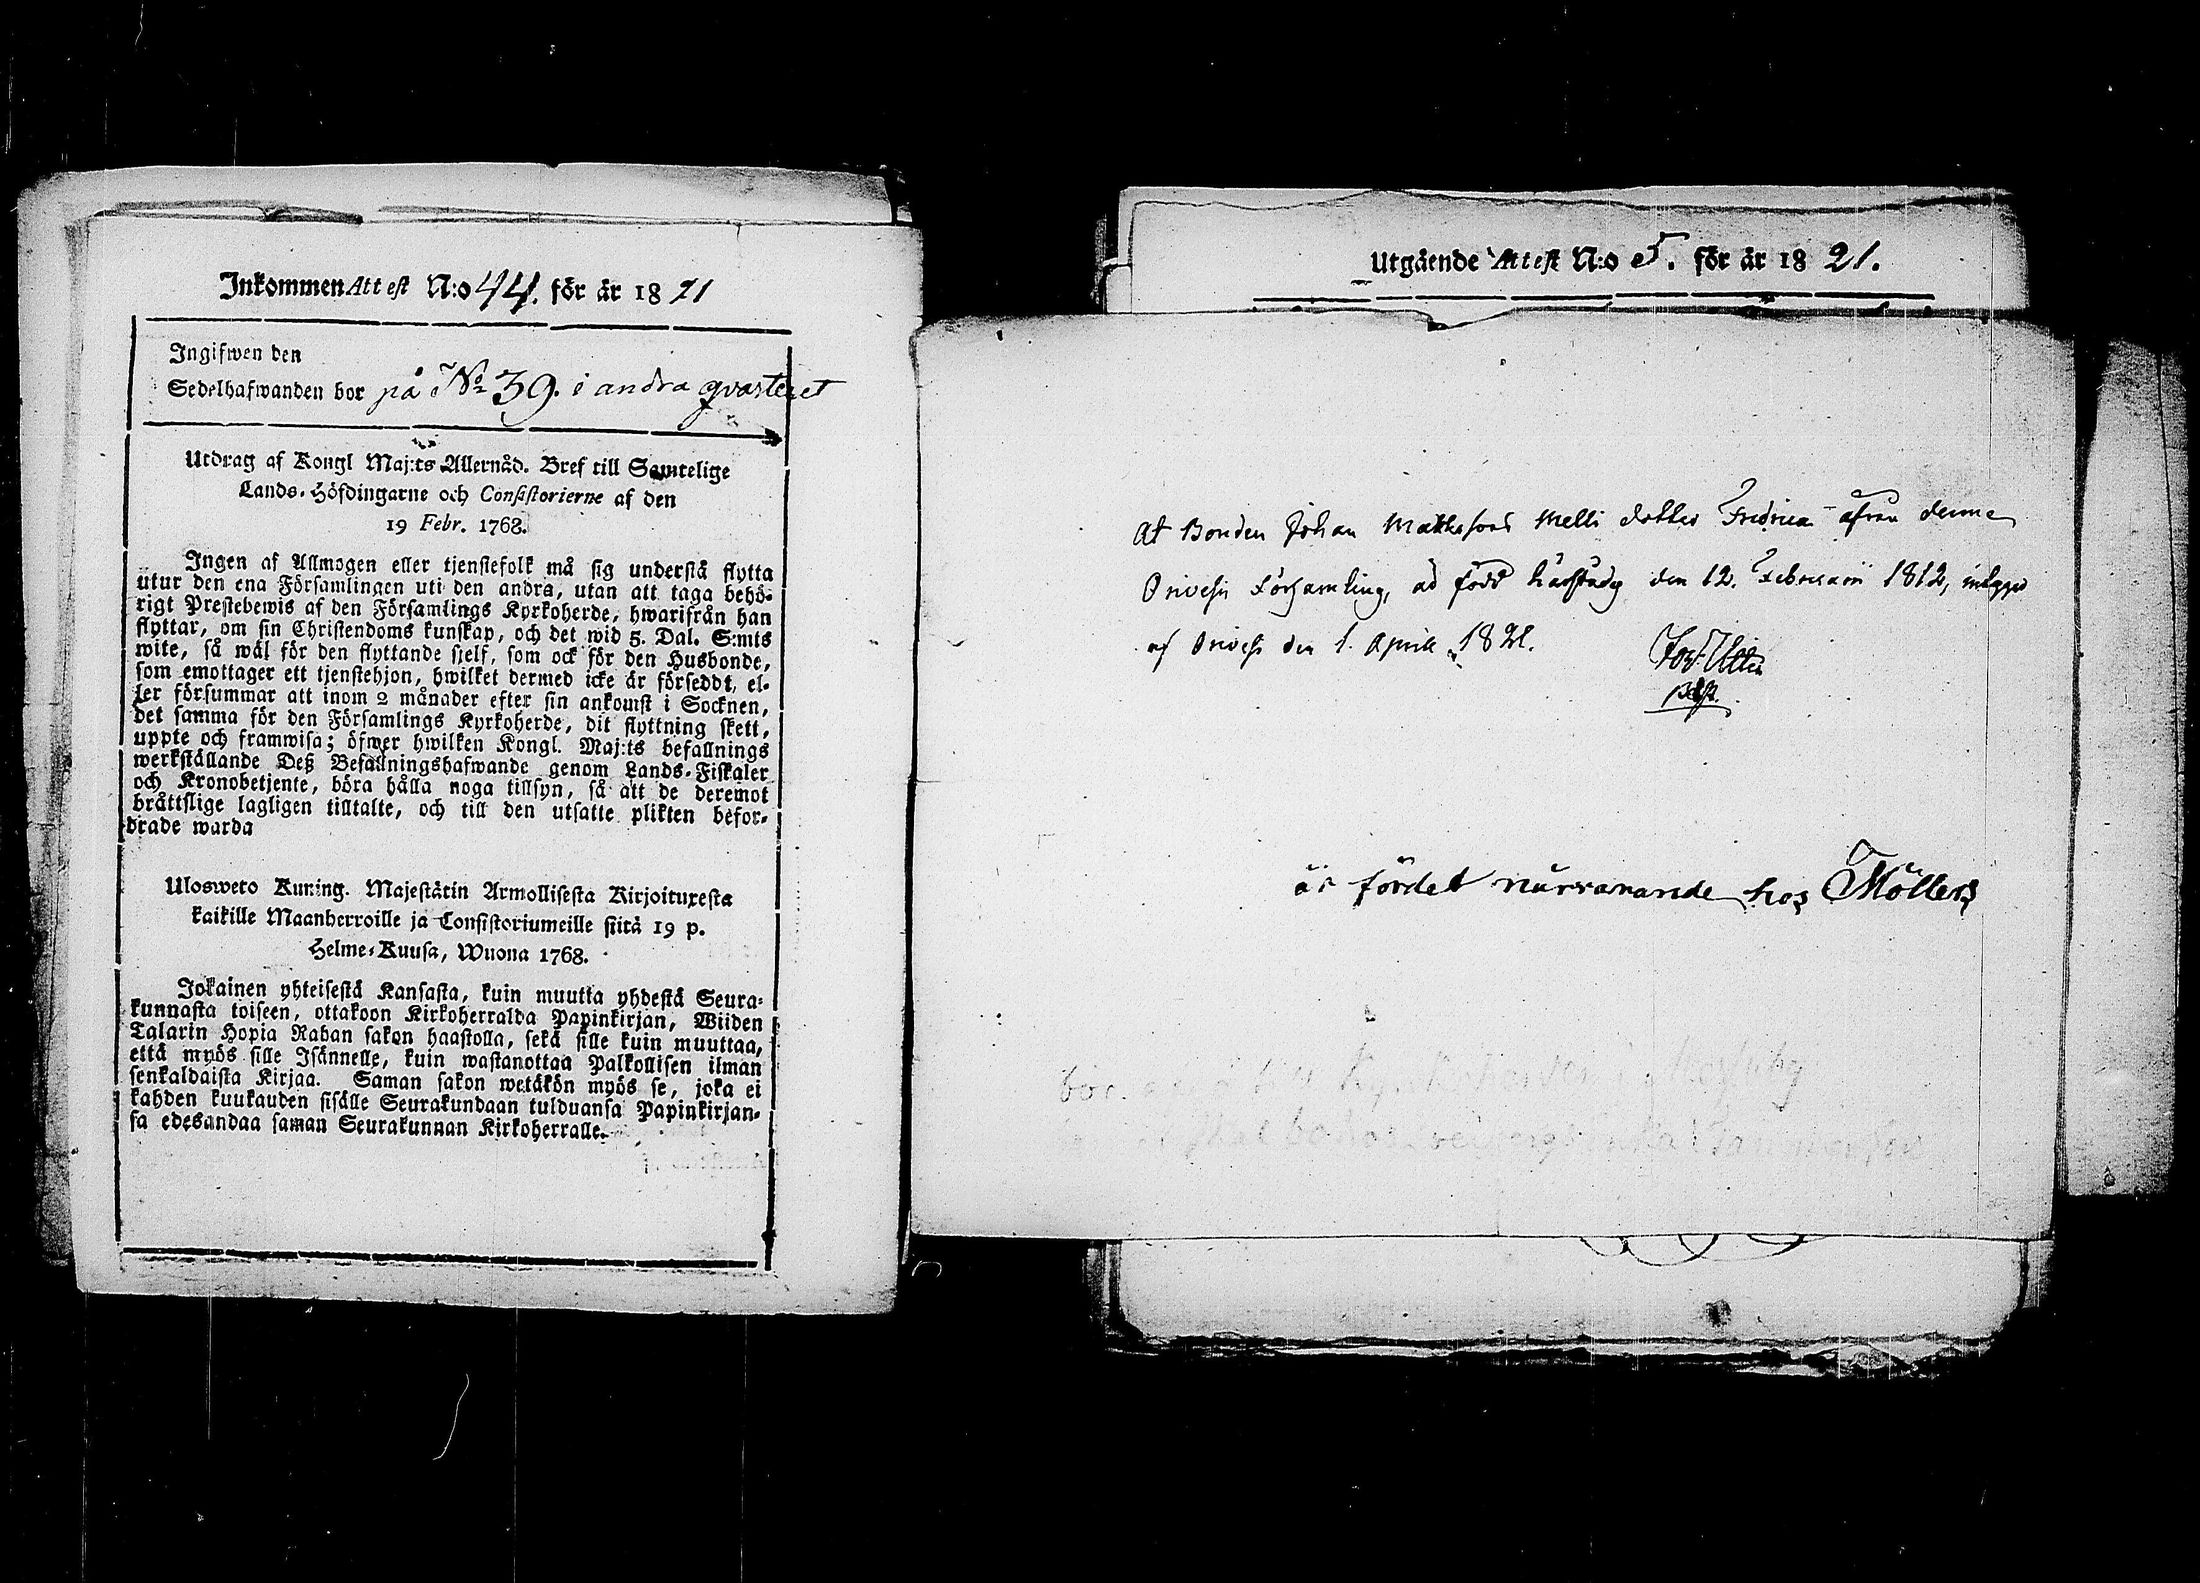 Inkommen Attest N:o 44. för år 1821
Ingifwen den
Sedelhafwanden bor på No 39. i andra qvarteret
Utdrag af Kongl Maj:ts Allernåd. Bref till Samtelige
Lands-Höfdingarne och Consistorierne af den
19 Febr. 1768.
Ingen af Allmogen eller tjenstefolk må sig understå flytta
utur den ena Församlingen uti den andra, utan att taga behö-
rigt Prestebewis af den Församlings Kyrkoherde, hwarifrån han
flyttar, om sin Christendoms kunskap, och det wid 5. Dal. S:mts
wite, så wäl för den flyttande sjelf, som ock för den Husbonde,
som emottager ett tjenstehjon, hwilket dermed icke är försedt, el-
ler försummar att inom 2 månader efter sin ankomst i Socknen,
det samma för den Församlings Kyrkoherde, dit flyttning skett,
uppte och framwisa; öfwer hwilken Kongl. Maj:ts befallnings
werkställande Deß Befallningshafwande genom Lands-Fiskaler
och Kronobetjente, böra hålla noga tillsyn, så att de deremot
bråttslige lagligen tilltalte, och till den utsatte plikten befor-
drade warda
Ulosweto Kuning. Majestätin Armollisesta Kirjoituxesta
kaikille Maanherroille ja Consistoriumeille siitä 19 p.
Helme-Kuusa, Wuona 1768.
Jokainen yhteisestä Kansasta, kuin muutta yhdestä Seura-
kunnasta toiseen, ottakoon Kirkoherralda Papinkirjan, Wiiden
Talarin Hopia Rahan sakon haastolla, sekä sille kuin muuttaa,
että myös sille Isännelle, kuin wastanottaa Palkollisen ilman
senkaldaista Kirjaa. Saman sakon wetäkön myös se, joka ei
kahden kuukauden sisälle Seurakundaan tulduansa Papinkirjan-
sa edesandaa saman Seurakunnan Kirkoherralle.
Utgående Attest N:o 5. för år 1821.
At Bonden Johan Mattsons Melli dotter Fredrica ifrån denna
Orivesi Församling, är född härstädes den 12. Februarii 1812, intygar
af Orivesi den 1. April 1821.
är fördet närvarande hos Möllers